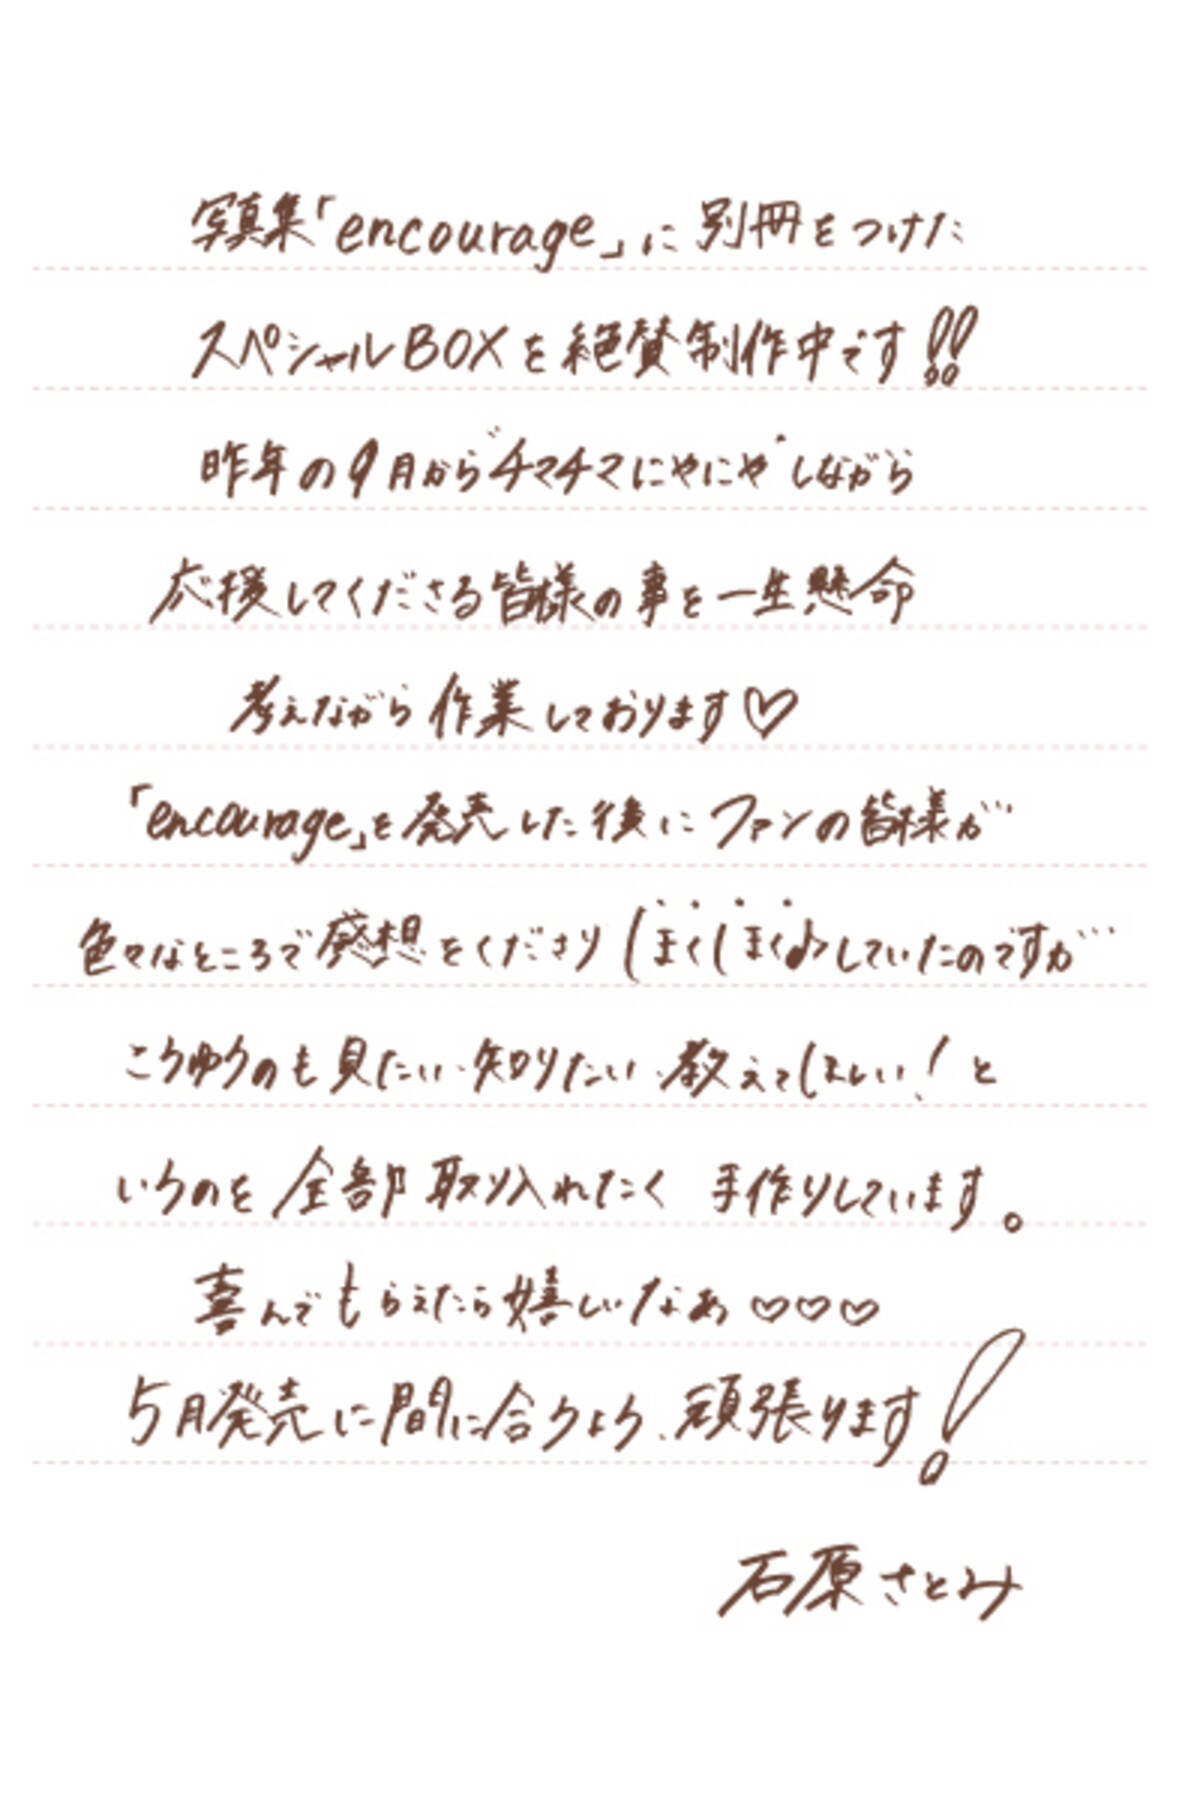 写真集「encourage」に別冊をつけた
スペシャルBOXを絶賛制作中です!!
昨年の9月からチマチマにやにやしながら
応援してくださる皆様の事を一生懸命
考えながら作業しております♡
「encourage」を発売した後にファンの皆様が
色々なところで感想をくださりほくほく♪していたのですが…
こうゆうのも見たい、知りたい、教えてほしい!と
いうのを全部取り入れたく手作りしています。
喜んでもらえたら嬉しいなぁ♡♡♡
5月発売に間に合うよう、頑張ります!
石原さとみ